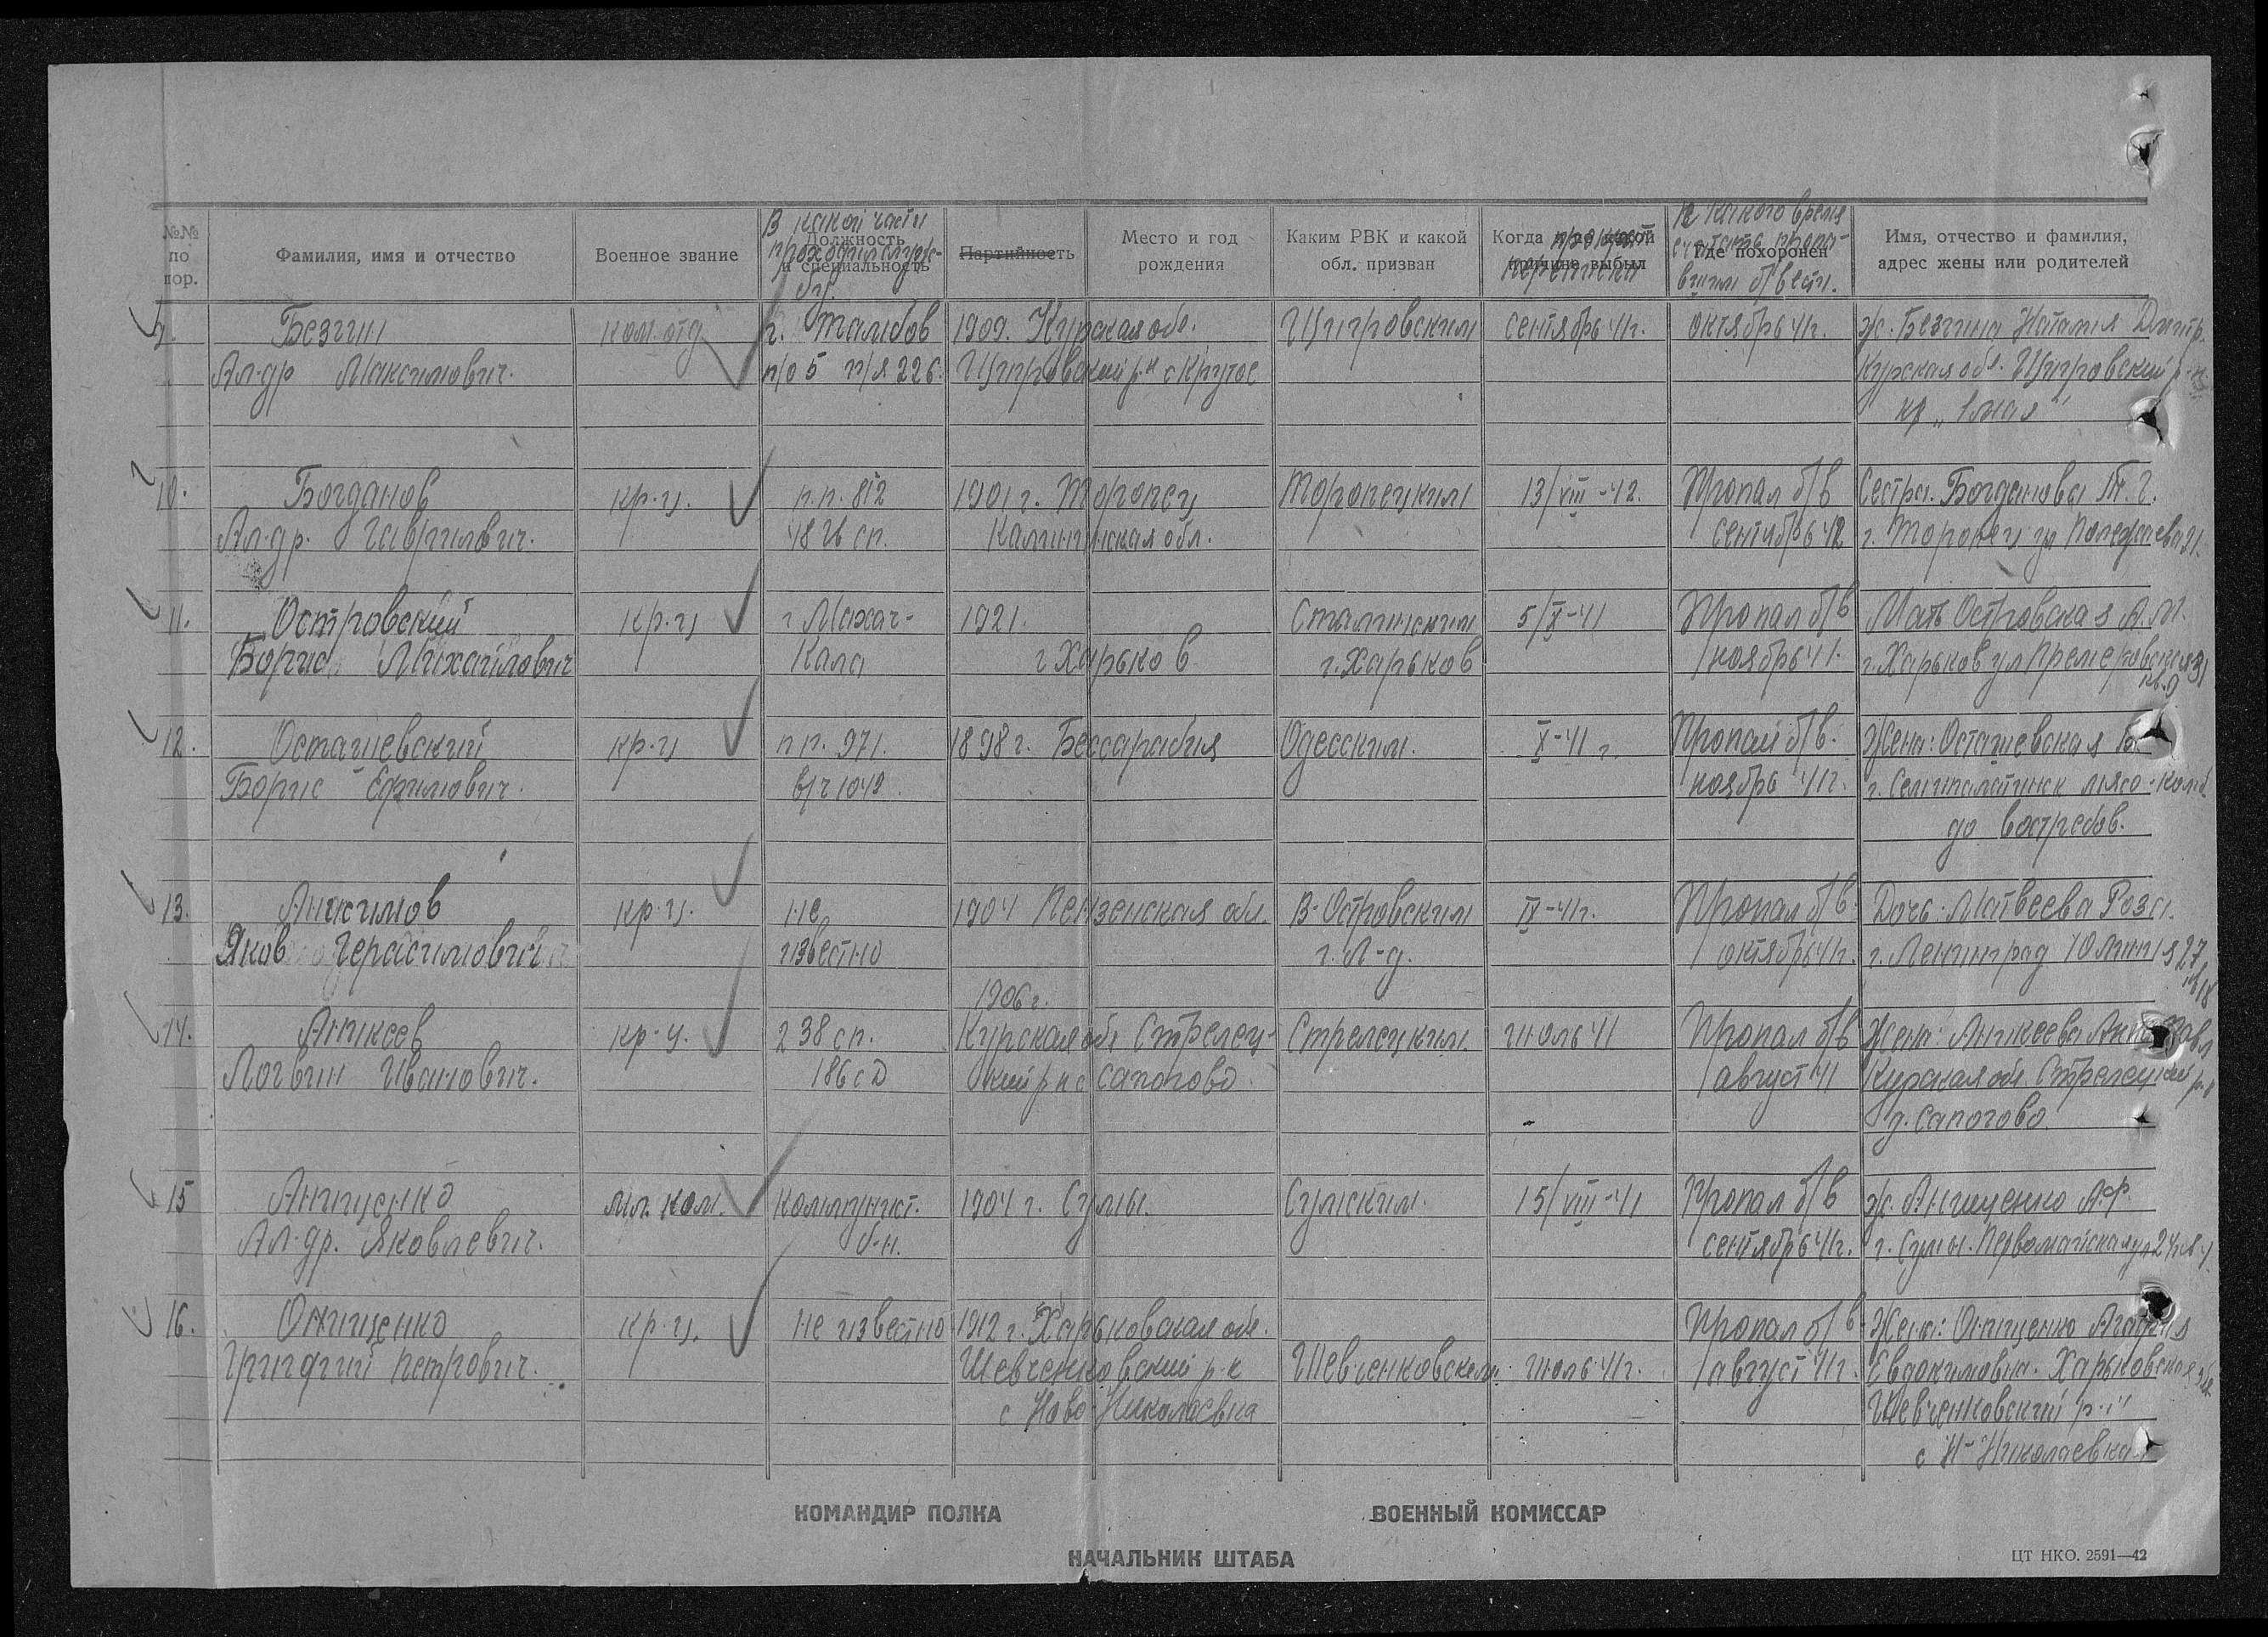 №№ по пор.
Фамилия, имя и отчество
Военное звание
В какой части проходил службу
Должность и специальность
Партийность
Место и год рождения
Каким РВК и какой обл. призван
Когда и по какой причине выбыл
Где похоронен
считать пропавшим б/вести.
Имя, отчество и фамилия, адрес жены или родителей
9. Безгин ком. отд г. Тамбов 1909. Курская обл. Щигровским сентябрь 41г. октябрь 41г. ж. Безгина Наталия Дмитр.
Ал-др Максимович. п/о 5 п/я 226. Щигровский р-н с Крутое Курская обл. Щигровский р-н
"1 мая"
10. Богданов кр-ц. п.п. 812 1901 г. Торопец Торопецким 13/VIII-42. Пропал б/в Сестра. Богданова
Ал-др. Гаврилович. 48 сп. Калининская обл. сентябрь 42 г. Торопец ул
11. Островский кр-ц г Махач- 1921. Сталинским 5/X-41 Пропал б/в Мать Островская А.М.
Борис Михайлович Кала г Харьков г. Харьков ноябрь 41. г. Харьков ул
кв. 9
12. Осташевский кр-ц п п. 971. 1898 г. Бессарабия Одесским. X-41 г. Пропал б/в. Жена: Осташевская
Борис Ефимович. в/ч 1049. ноябрь 41г. г. Семипалатинск мясо-комб
до востребов.
13. Анисимов кр-ц. не 1904 Пензенская обл. В-Островским IX-41г. Пропал б/в. Дочь. Матвеева Роза.
Яков Герасимович известно г. Л-д. октябрь 41г. г. Ленинград 10 линия 27
кв 18
1906 г.
14. Аникеев кр-ц. 238 сп. Курская обл Стрелец- Стрелецким. июль 41 Пропал б/в Жена: Аникеева Анна Павл
Логвин Иванович. 186 сД кий р н с Сапогово. август 41 Курская обл Стрелецкий р-н
д. Сапогово.
15 Анищенко мл. ком. коммунист. 1904 г. Сумы. Сумским. 15/VIII-41 Пропал б/в ж. Анищенко
Ал-др. Яковлевич. б-н. сентябрь 41г. г. Сумы. Первомайская
16. Онищенко кр-ц. не известно 1912 г. Харьковская обл. Пропал б/в. Жена: Онищенко Агафия
Григорий Петрович. Шевченковский р-н Шевченковским июль 41г. август 41г. Евдокимовна. Харьковская обл.
с Ново-Николаевка Шевченковский р-н
с Н-Николаевка
КОМАНДИР ПОЛКА
ВОЕННЫЙ КОМИССАР
НАЧАЛЬНИК ШТАБА
ЦТ НКО. 2591—42